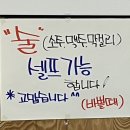 "술" (소주, 맥주, 막걸리)
셀프 가능
합니다
* 고맙습니다 ^^ (바쁠때)